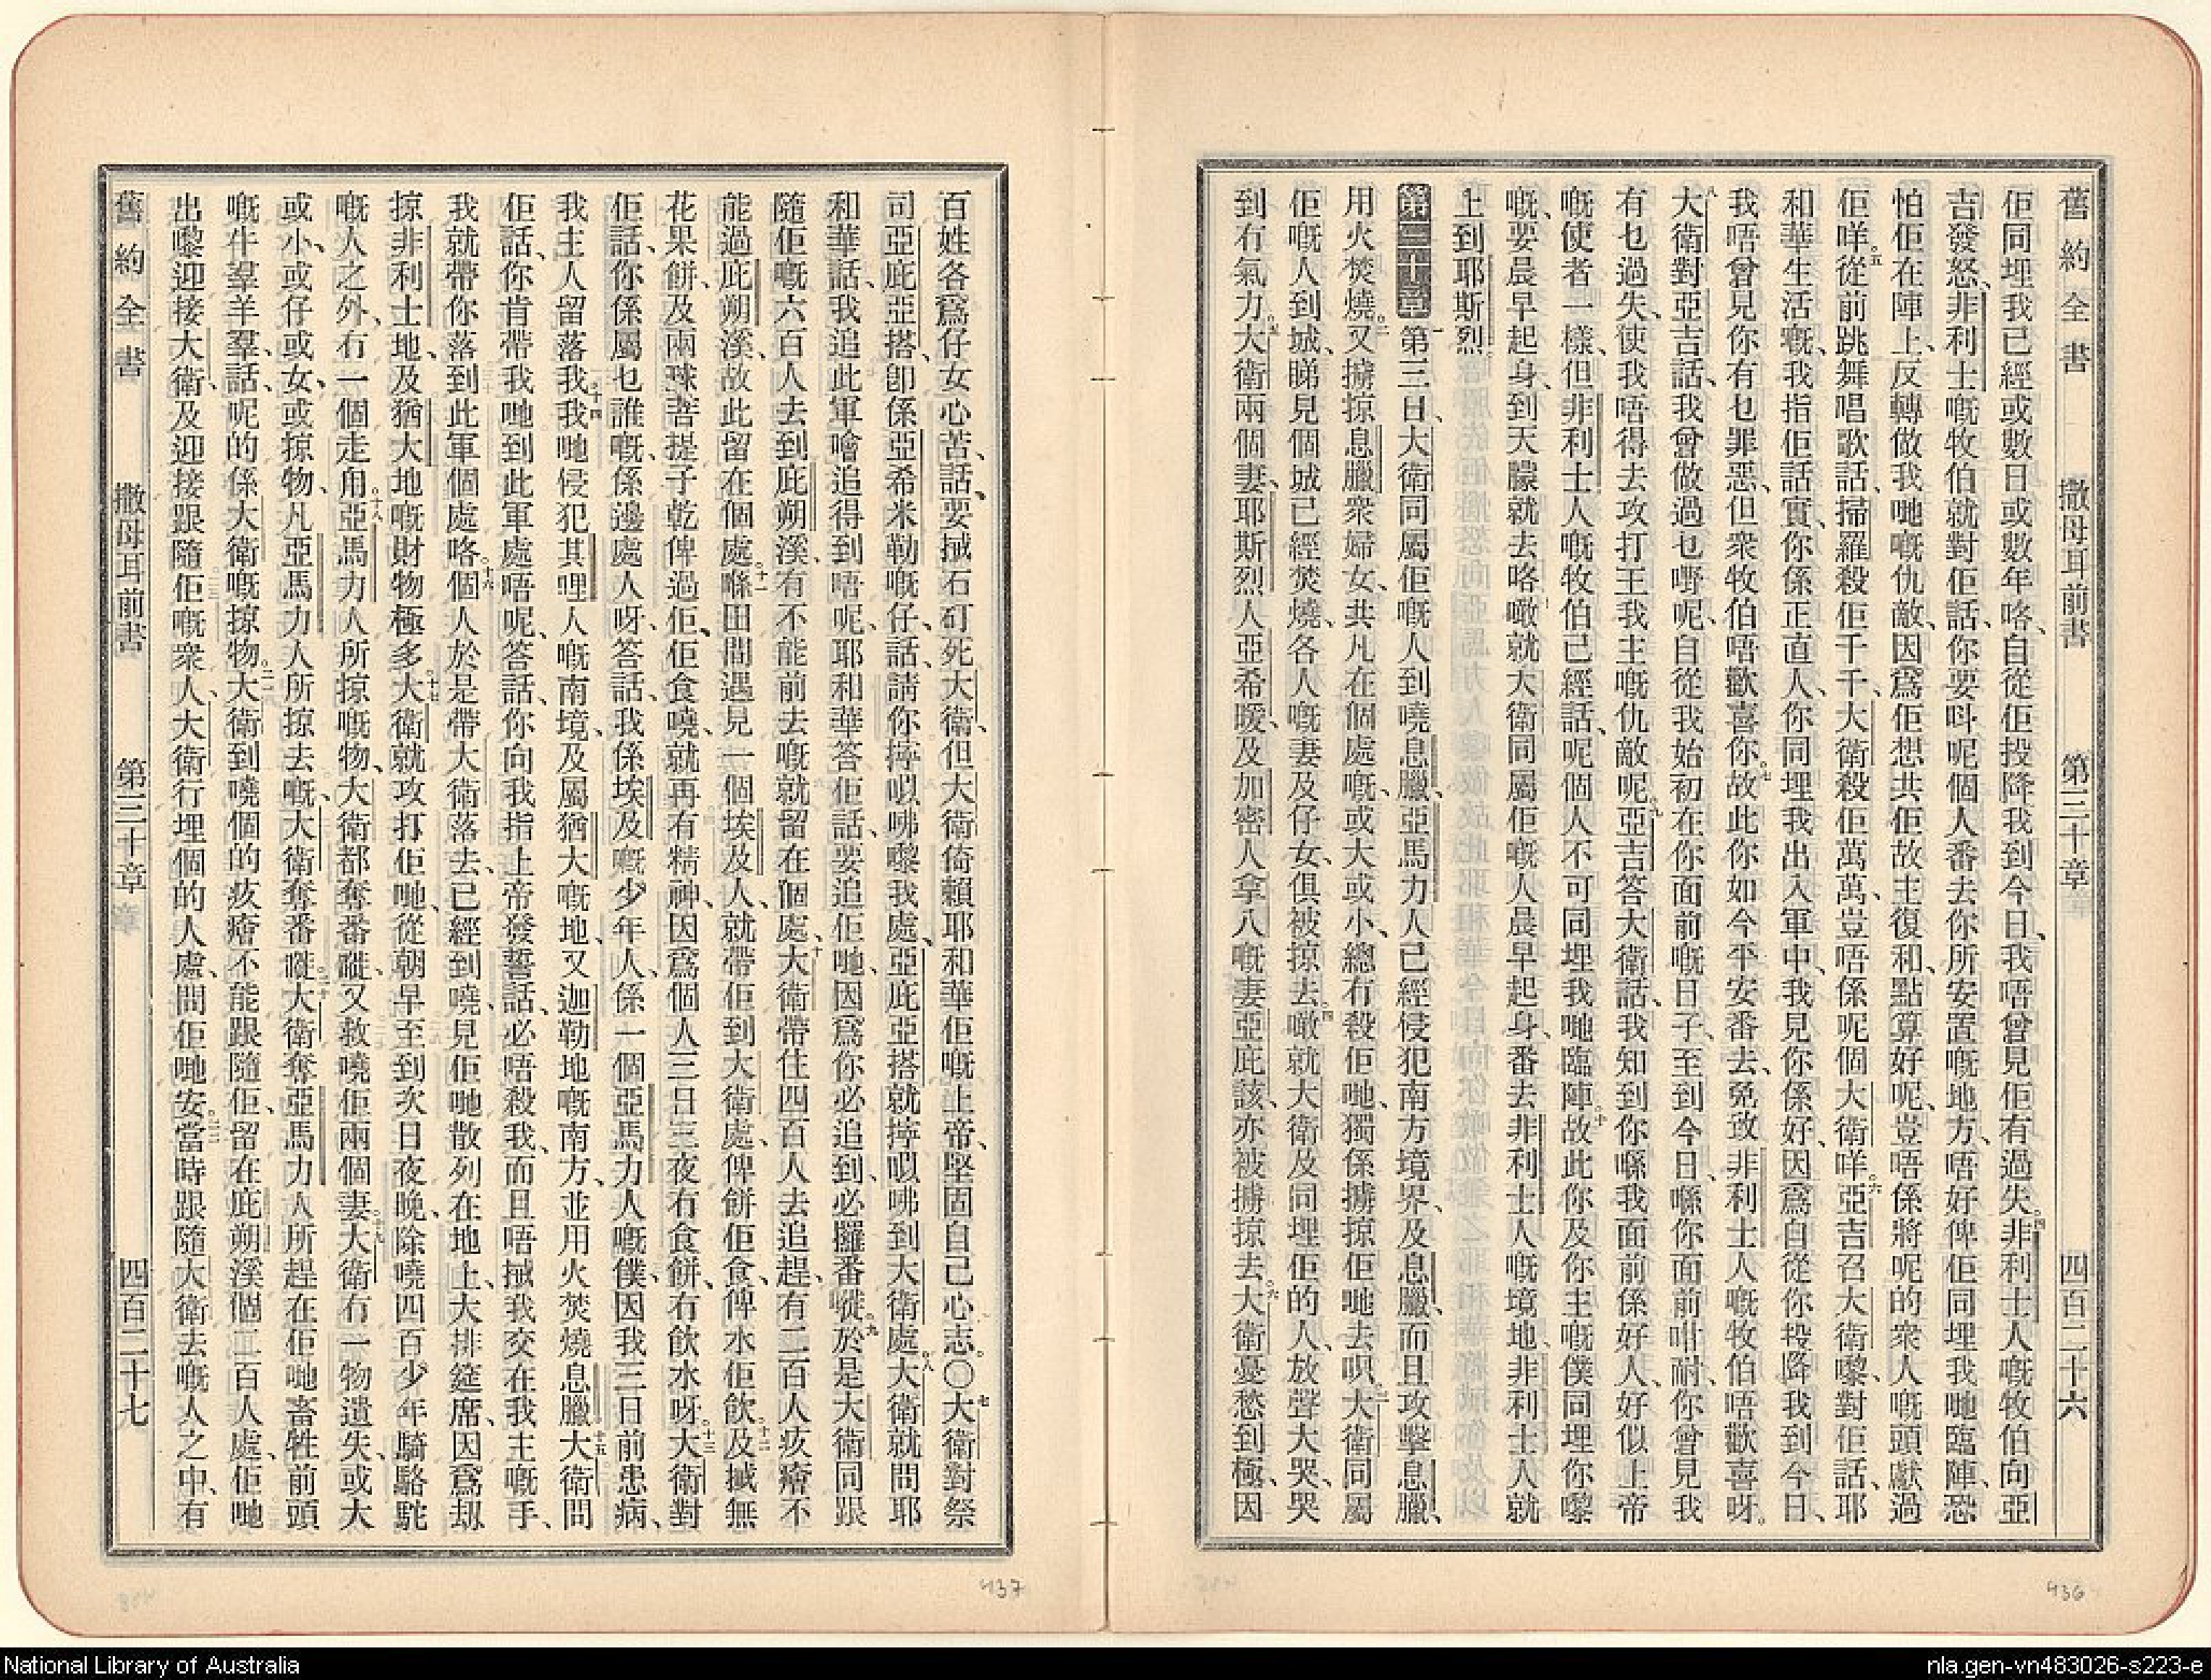 舊約全書 撒母耳前書 第三十章 四百二十六
佢同埋我已經或數日或數年咯、自從佢投降我到今日、我唔曾見佢有過失。四非利士人嘅牧伯向亞
吉發怒、非利士嘅牧伯就對佢話、你要呌呢個人番去你所安置嘅地方、唔好俾佢同埋我哋臨陣、恐
怕佢在陣上、反轉做我哋嘅仇敵、因爲佢想共佢故主復和、點算好呢、豈唔係將呢的衆人嘅頭獻過
佢咩。五從前跳舞唱歌話、掃羅殺佢千千、大衛殺佢萬萬、豈唔係呢個大衛咩。六亞吉召大衛嚟、對佢話、耶
和華生活嘅、我指佢話、實你係正直人、你同埋我出入軍中、我見你係好、因爲自從你投降我到今日、
我唔曾見你有乜罪惡、但衆牧伯唔歡喜你。七故此你如今平安番去、免致非利士人嘅牧伯唔歡喜呀。
八大衛對亞吉話、我曾做過乜嘢呢、自從我始初在你面前嘅日子、至到今日、喺你面前咁耐、你曾見我
有乜過失、使我唔得去攻打王我主嘅仇敵呢。九亞吉答大衛話、我知到你喺我面前係好人、好似上帝
嘅使者一樣、但非利士人嘅牧伯已經話、呢個人不可同埋我哋臨陣。十故此你及你主嘅僕同埋你嚟
嘅、要晨早起身、到天朦就去咯。十一噉就大衛同屬佢嘅人晨早起身、番去非利士人嘅境地、非利士人就
上到耶斯烈。
第三十章 一第三日、大衛同屬佢嘅人到嘵息臘、亞馬力人已經侵犯南方境界、及息臘、而且攻擊息臘、
用火焚燒。二又擄掠息臘衆婦女、共凡在個處嘅、或大或小、總冇殺佢哋、獨係擄掠佢哋去唄。三大衛同屬
佢嘅人到城、睇見個城已經焚燒、各人嘅妻及仔女、俱被掠去。四噉就大衛及同埋佢的人、放聲大哭、哭
到冇氣力。五大衛兩個妻、耶斯烈人亞希暖、及加密人拿八嘅妻亞庇該、亦被擄掠去。六大衛憂愁到極、因
百姓各爲仔女心苦、話、要掝石矴死大衛、但大衛倚賴耶和華佢嘅上帝、堅固自己心志。〇七大衛對祭
司亞庇亞搭、卽係亞希米勒嘅仔、話、請你擰㕽咈嚟我處、亞庇亞搭就擰㕽咈到大衛處。八大衛就問耶
和華話、我追此軍噲追得到唔呢、耶和華答佢話、要追佢哋、因爲你必追到、必攞番嘥。九於是大衛同跟
隨佢嘅六百人去到庇朔溪、有不能前去嘅就留在個處。十大衛帶住四百人去追趕、有二百人疚瘡不
能過庇朔溪、故此留在個處。十一喺田間遇見一個埃及人、就帶佢到大衛處、俾餅佢食、俾水佢飲。十二及掝無
花果餅、及兩球菩提子乾俾過佢、佢食嘵、就再有精神、因爲個人三日三夜冇食餅、冇飲水呀。十三大衛對
佢話、你係屬乜誰嘅、係邊處人呀、答話、我係埃及嘅少年人、係一個亞馬力人嘅僕、因我三日前患病、
我主人留落我。十四我哋侵犯其哩人嘅南境、及屬猶大嘅地、又迦勒地嘅南方、並用火焚燒息臘。十五大衛問
佢話、你肯帶我哋到此軍處唔呢、答話、你向我指上帝發誓話、必唔殺我、而且唔掝我交在我主嘅手、
我就帶你落到此軍個處咯。十六個人於是帶大衛落去、已經到嘵、見佢哋散列在地上、大排筵席、因爲刼
掠非利士地、及猶大地嘅財物極多。十七大衛就攻打佢哋、從朝早至到次日夜晚、除嘵四百少年騎駱駝
嘅人之外、冇一個走甩。十八亞馬力人所掠嘅物、大衛都奪番嘥、又救嘵佢兩個妻。十九大衛冇一物遺失、或大
或小、或仔或女、或掠物、凡亞馬力人所掠去嘅、大衛奪番嘥。二十大衛奪亞馬力人所趕在佢哋畜牲前頭
嘅牛羣羊羣、話、呢的係大衛嘅掠物。二一大衛到嘵個的疚瘡不能跟隨佢、留在庇朔溪個二百人處、佢哋
出嚟迎接大衛、及迎接跟隨佢嘅衆人、大衛行埋個的人處、問佢哋安。二二當時跟隨大衛去嘅人之中、有
舊約全書 撒母耳前書 第三十章 四百二十七
437
436
National Library of Australia
nla.gen-vn483026-s223-e